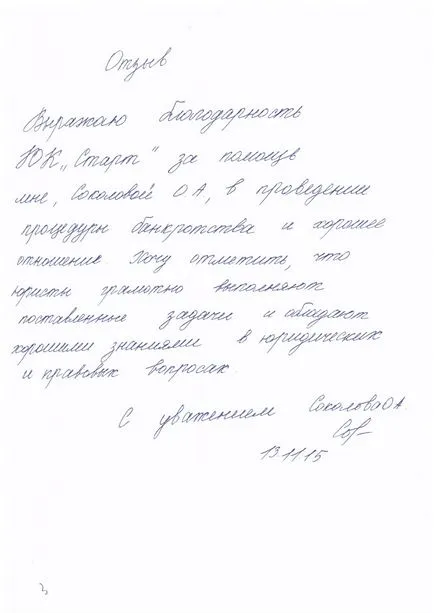 Отзыв
Выражаю благодарность
ЮК „Старт“ за помощь
мне, Соколовой О А, в проведении
процедуры банкротства и хорошее
отношение. Хочу отметить, что
юристы грамотно выполняют
поставленные задачи и обладают
хорошими знаниями в юридических
и правовых вопросах.
С уважением Соколова О А.
13.11.15